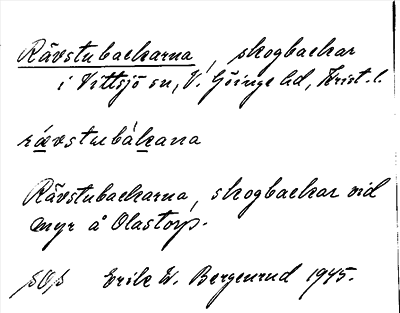 Rävstubackarna, skogbackar
i Vittsjö sn, V. Göinge hd, Krist. l.
rǽvstubákana
Rävstubackarna, skogbackar vid
myr å Olastorp.
Erik W. Bergenrud 1945.